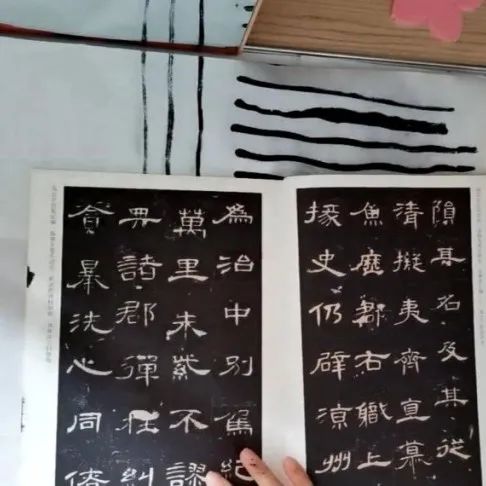 隕其名及其從
清擬夷齊直慕
魚歷郡右職上
掾史仍辟涼州
為治中別駕紀
萬里朱紫不謬
典諸郡彈枉糾
貪暴洗心同僚